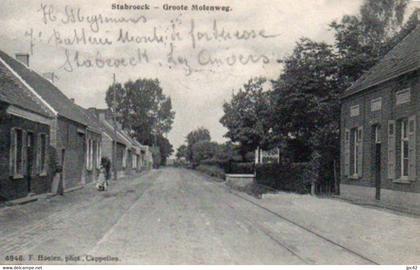 Stabroeck — Groote Molenweg.
H. Meysmans
Batterie de forteresse
Stabroeck, lez Anvers
4946 F. Hoelen, phot., Cappellen.